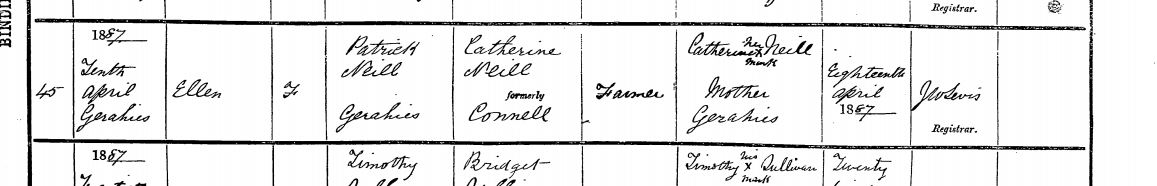 BINDI
Registrar.
45
1887
Tenth
April
Gerahies
Ellen
F
Patrick
Neill
Gerahies
Catherine
Neill
formerly
Connell
Farmer
Catherine her x Neill
mark
Mother
Gerahies
Eighteenth
April
1887
Registrar.
1887
Timothy
Bridget
Timothy his x Sullivan
mark
Twenty